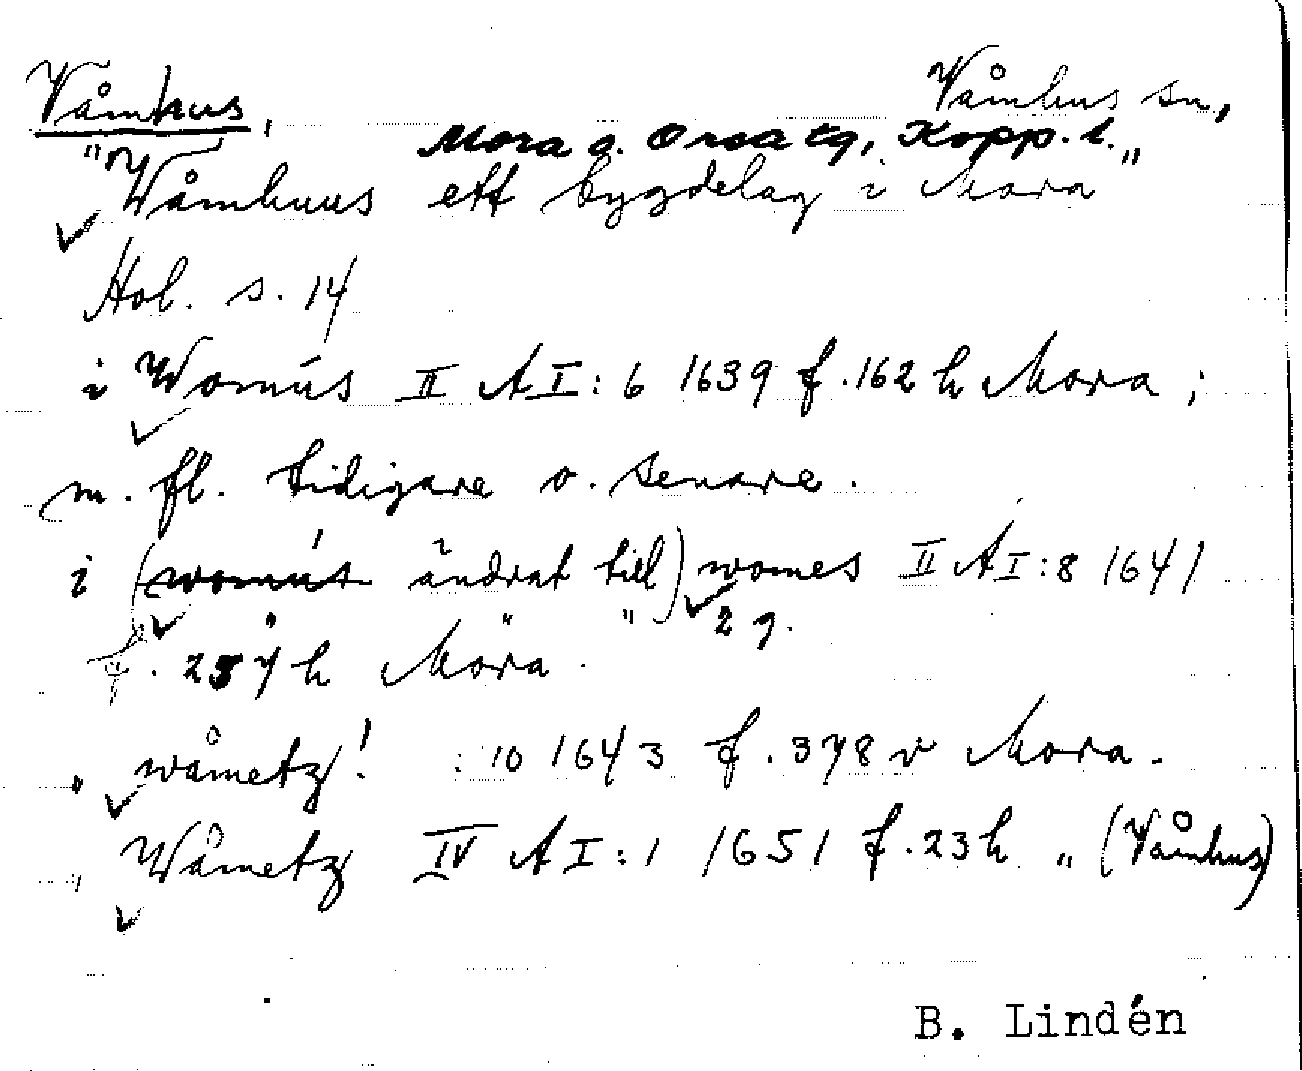 Våmhus,
Våmhus sn,
Mora o. Orsa tg, Kopp. l.
"Wåmhuus ett bygdelag i Mora"
Hol. s. 14
i Womús II A I: 6 1639 f. 162 h Mora;
m. fl. tidigare o. senare.
i (womús ändrat till) womes II A I: 8 1641
" " " 2 g.
f. 257 h Mora.
" wåmetz! : 10 1643 f. 378 v Mora.
" Wåmetz IV A I: 1 1651 f. 23 h " (Våmhus)
B. Lindén